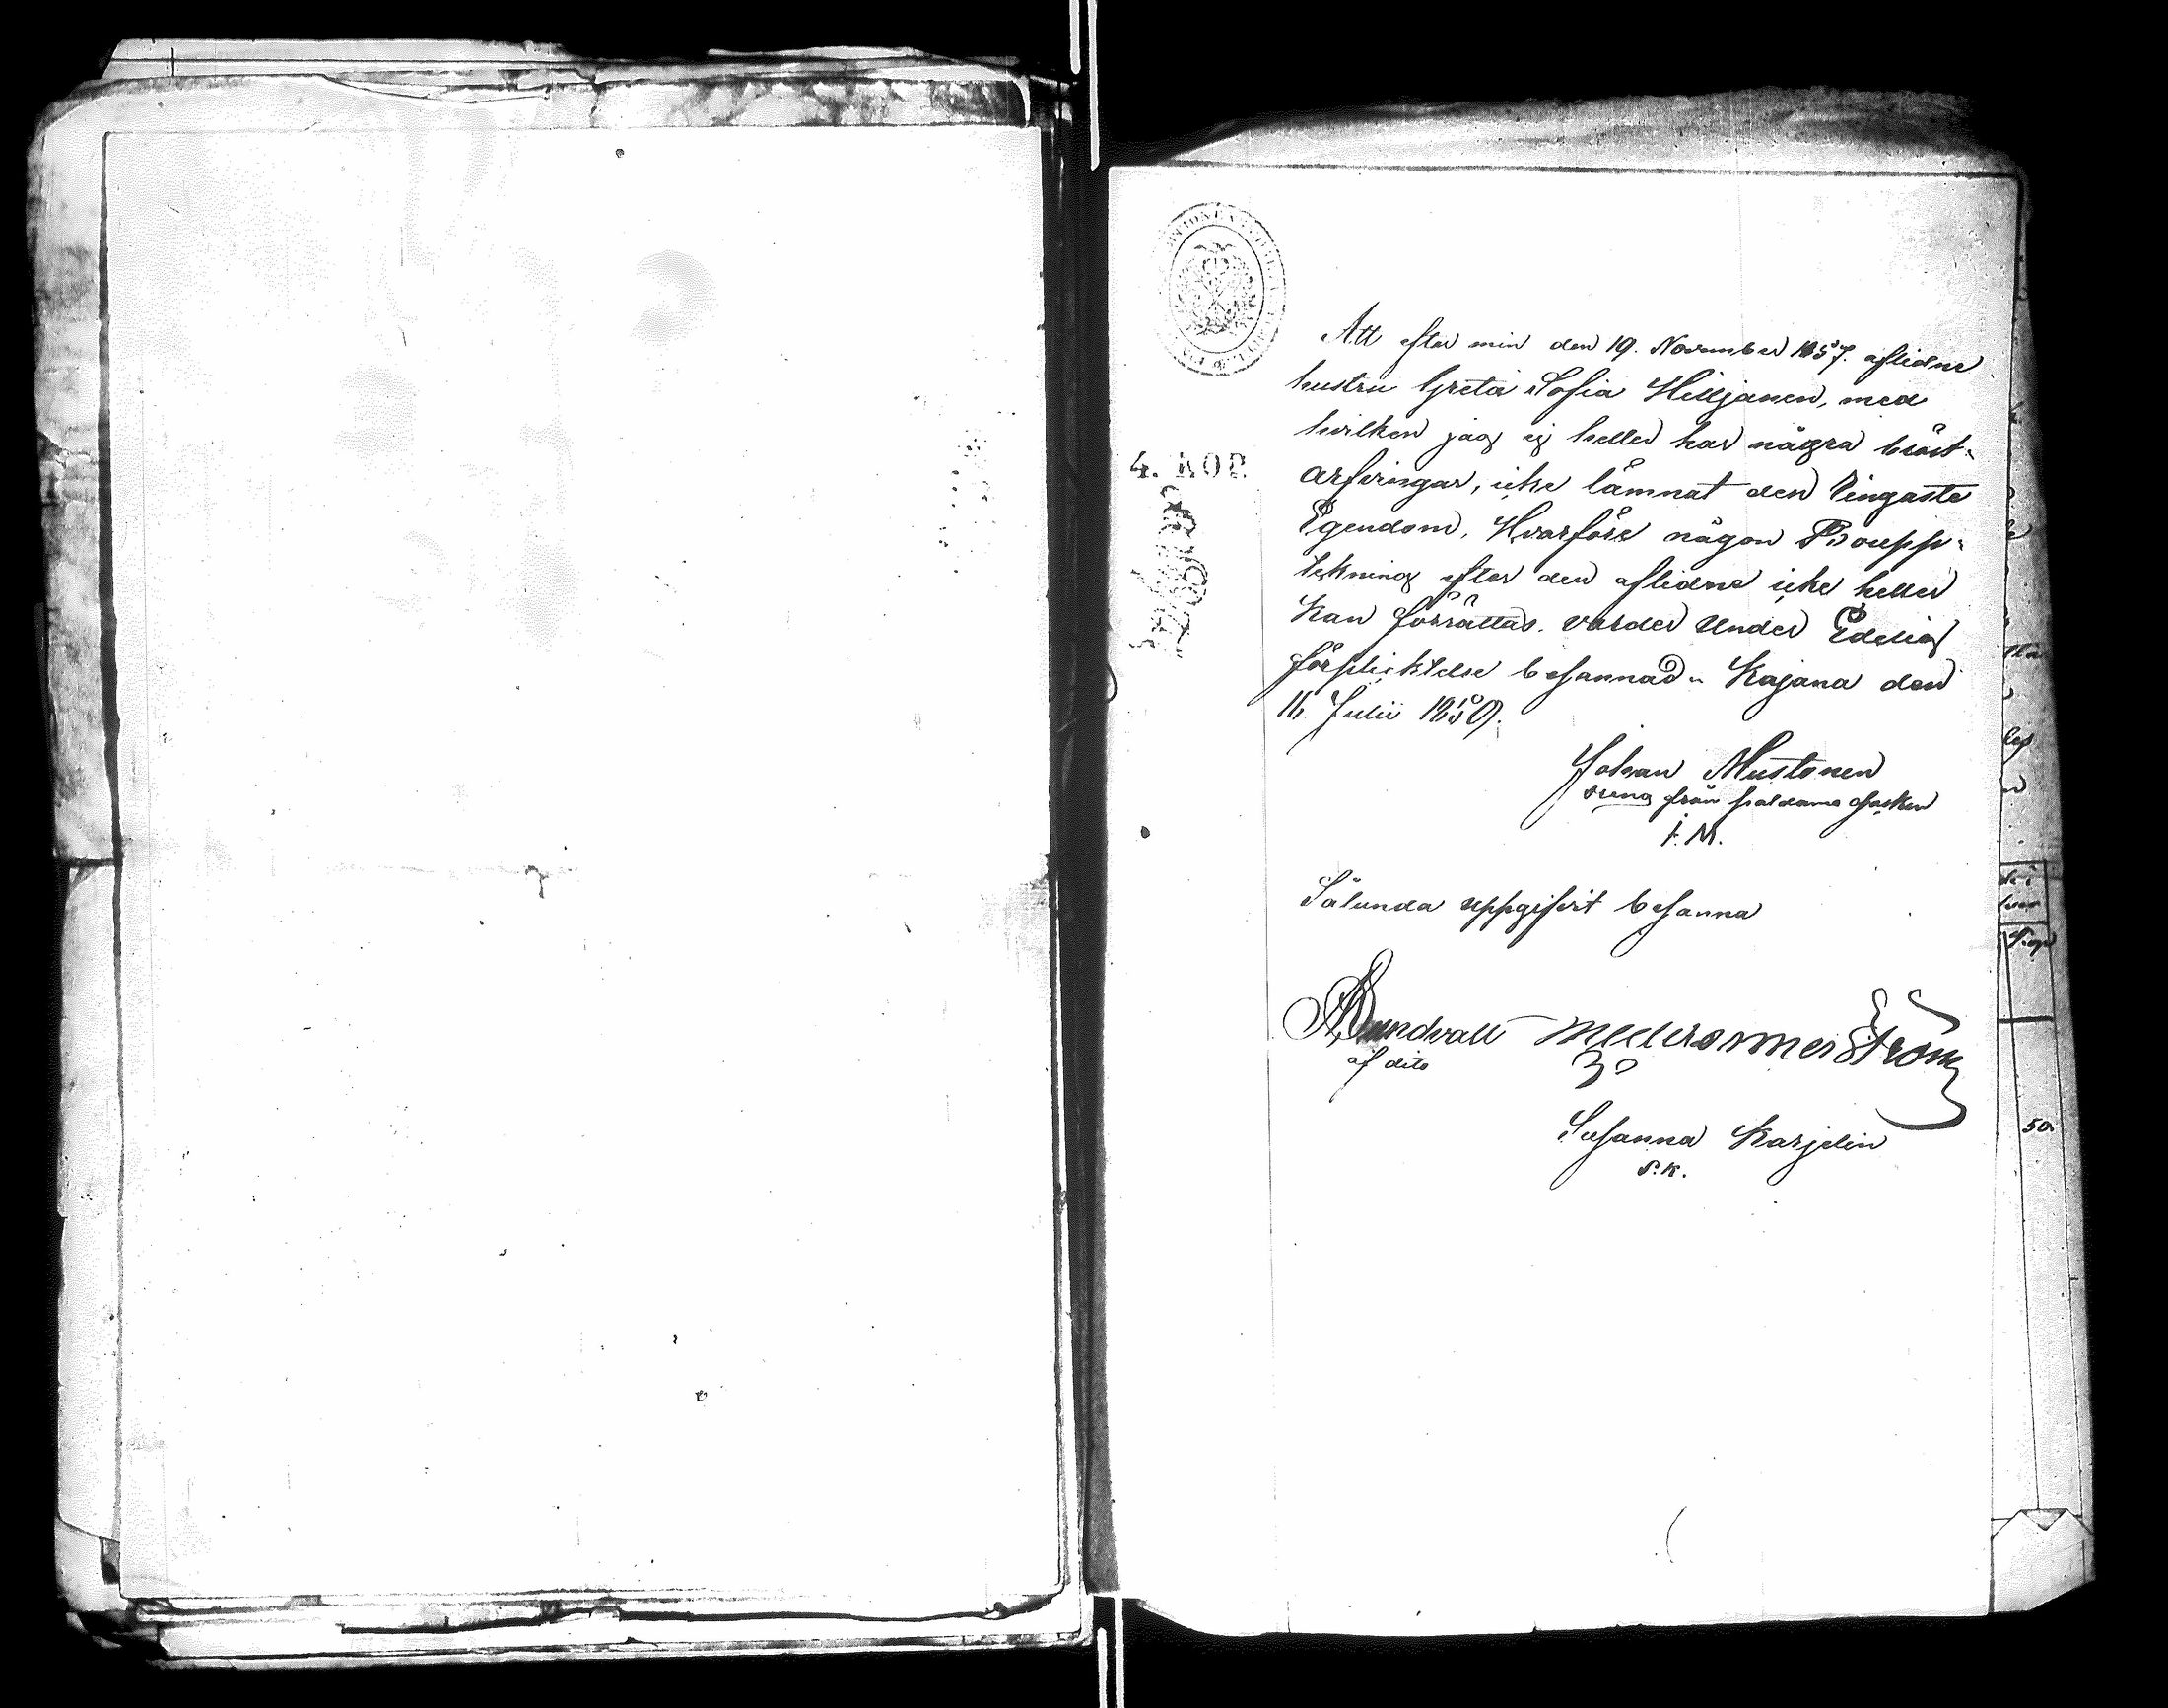 4. KOP.
Att efter min den 19. November 1857. aflidne
hustru Greta Sofia Hilljanen, med
hvilken jag ej heller har några bröst-
arfvingar, icke lämnat den ringaste
Egendom, Hvarföre någon Bouppt-
tekning efter den aflidne icke heller
kan förrättas, varder under Edelig
förpliektelse besannad. Kajana den
16. Julii 1859.
Johan Mustonen
dreng från Paldamo Socken
J. M.
Sålunda uppgifvit besanna
Sundvall
af dito
Ström
Susanna Karjelin
S. K.
50